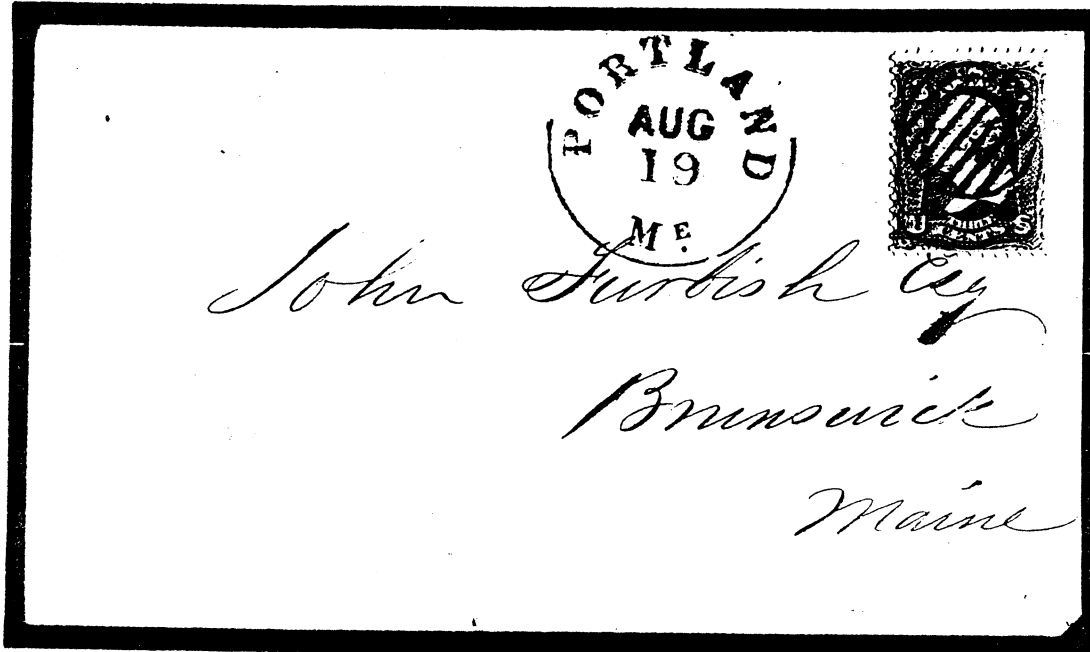 PORTLAND
AUG
19
ME.
U S
CENTS
John Furbish Esq
Brunswick
Maine